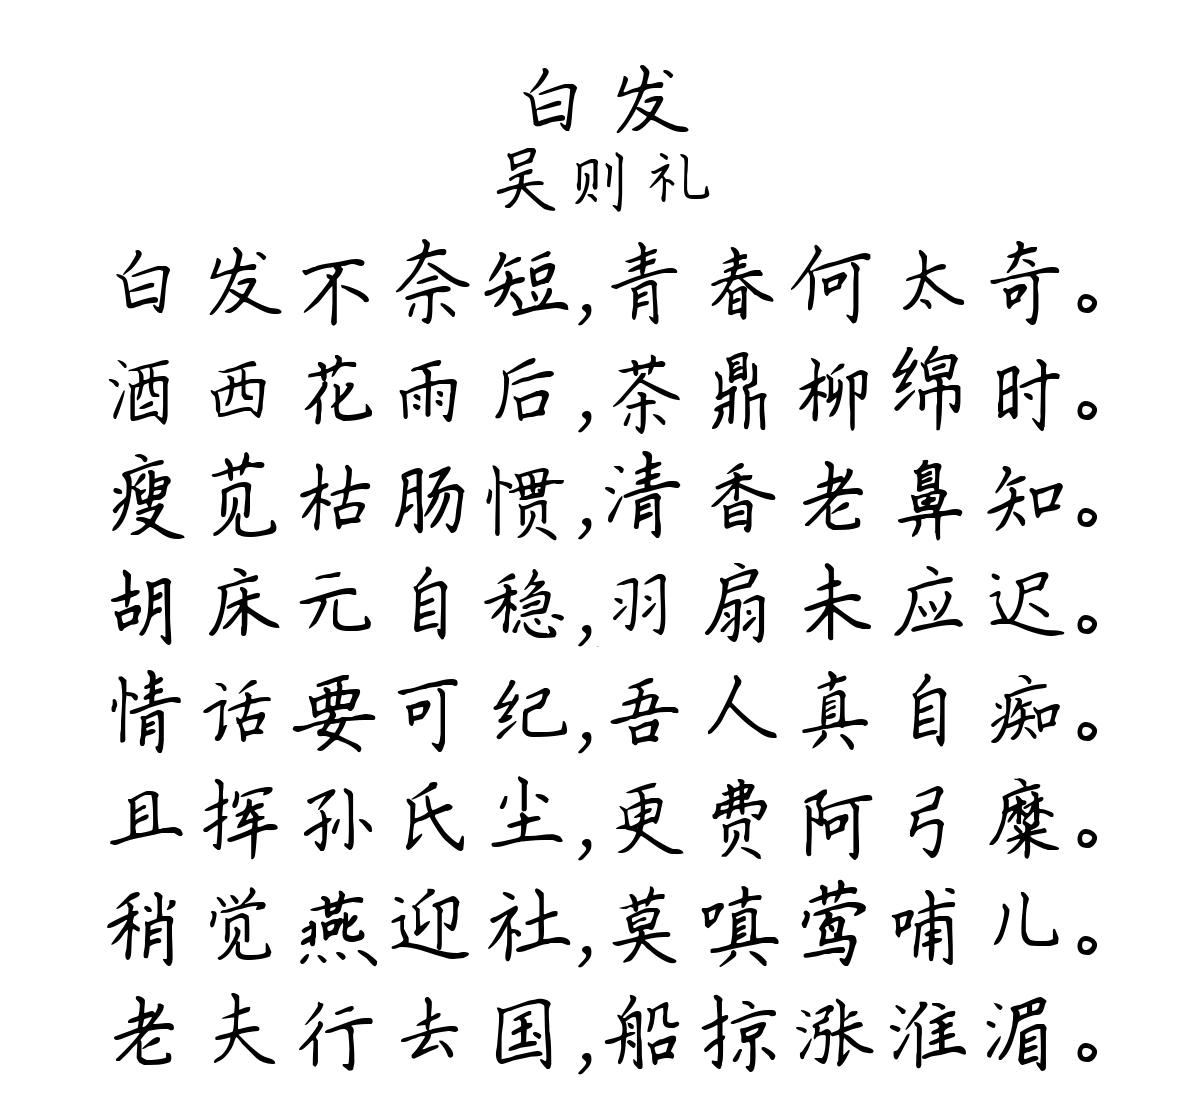 白发
吴则礼
白发不奈短,青春何太奇。
酒西花雨后,茶鼎柳绵时。
瘦苋枯肠惯,清香老鼻知。
胡床元自稳,羽扇未应迟。
情话要可纪,吾人真自痴。
且挥孙氏尘,更费阿弓糜。
稍觉燕迎社,莫嗔莺哺儿。
老夫行去国,船掠涨淮湄。